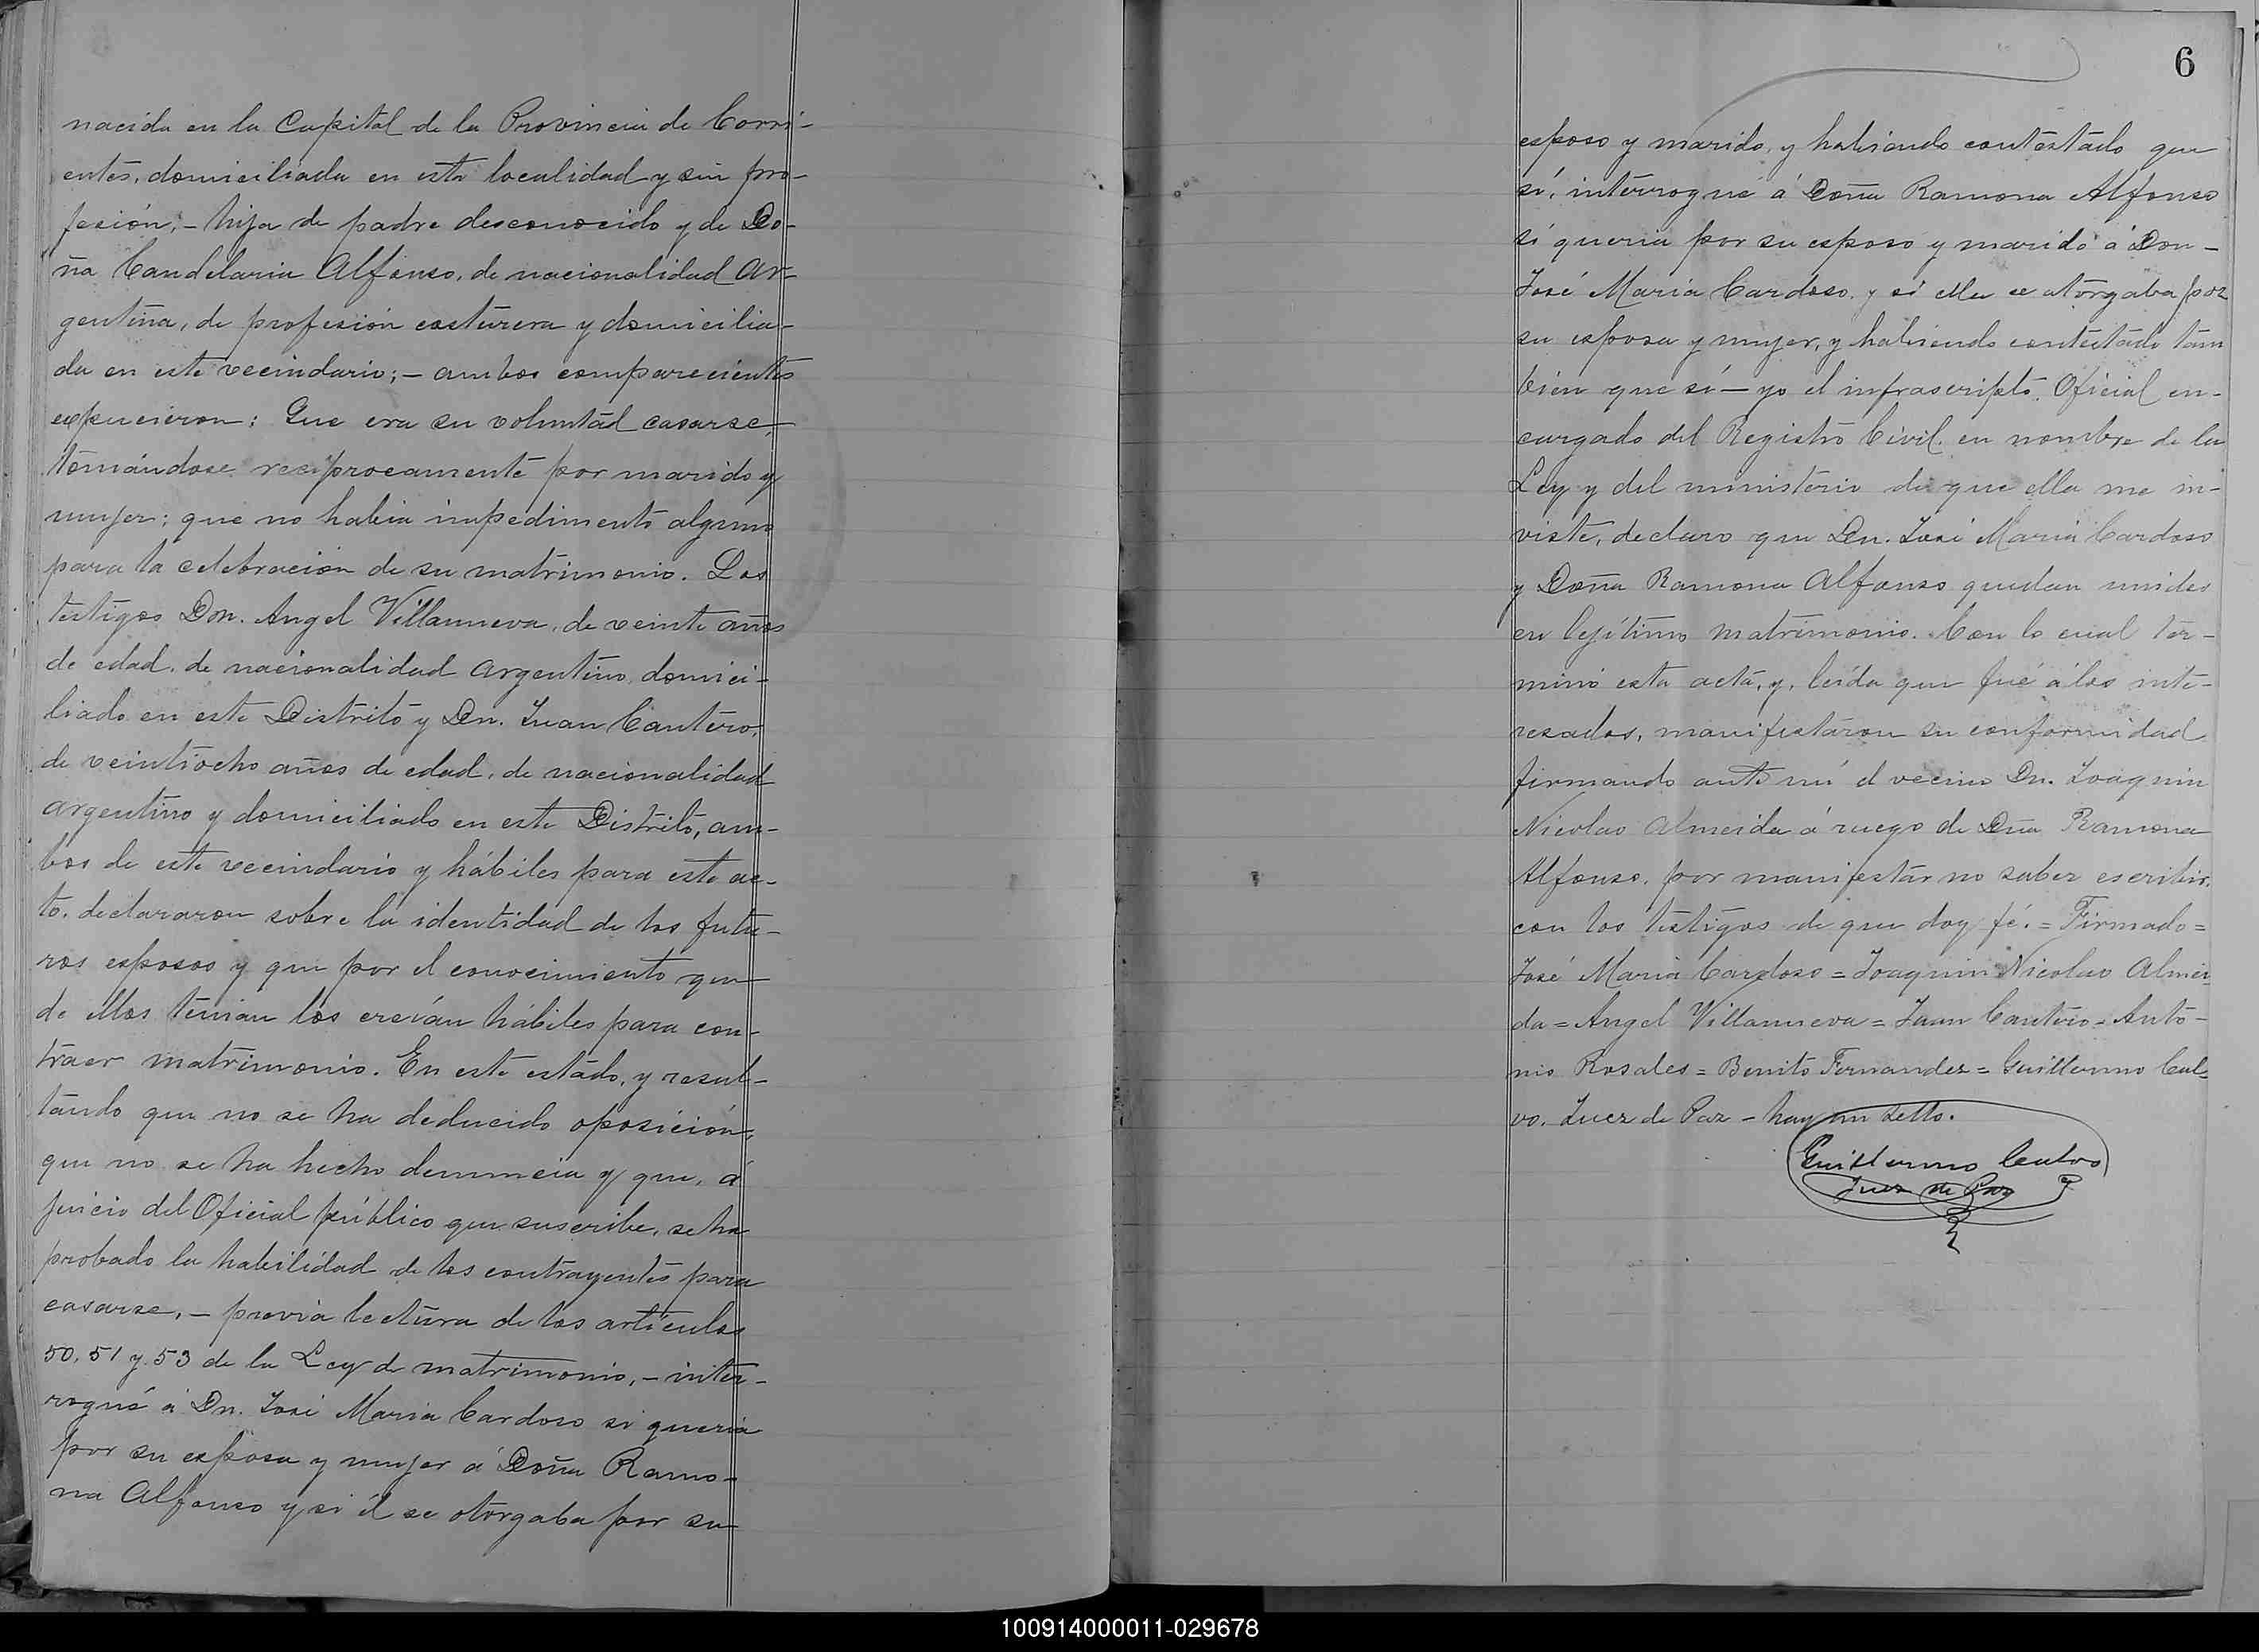 nacida en la Capital de la Provincia de Corri-
entes, domiciliada en esta localidad y sin pro-
fesión; - hija de padre desconocido y de Do-
ña Candelaria Alfonso, de nacionalidad Ar-
gentina, de profesión costurera y domicilia-
da en este vecindario; - ambos comparecientes
expucieron: Que era su voluntad casarse,
tomándose reciprocamente por marido y
mujer; que no habia impedimento alguno
para la celebración de su matrimonio. Los
testigos Don. Angel Villanueva, de veinte años
de edad, de nacionalidad argentino, domici-
liado en este Distrito y Dn. Juan Cantero,
de veintiocho años de edad, de nacionalidad
argentino y domiciliado en este Distrito, am-
bos de este vecindario y hábiles para este ac-
to, declararon sobre la identidad de los futu-
ros esposos y que por el conocimiento que
de ellos tenian los creían hábiles para con-
traer matrimonio. En este estado, y resul-
tando que no se ha deducido oposición,
que no se ha hecho denuncia y que, á
juicio del Oficial público que suscribe, se ha
probado la habilidad de los contrayentes para
casarse, - previa lectura de los artículos
50, 51 y 53 de la Ley de matrimonio, - inter-
rogué á Dn. José Maria Cardoso si queria
por su esposa y mujer á Doña Ramo-
na Alfonso y si él se otorgaba por su
6
esposo y marido, y habiendo contestado que
sí, interrogué á Doña Ramona Alfonso
si queria por su esposo y marido á Don -
José María Cardoso y si ella se otorgaba por
su esposa y mujer, y habiendo contestado tam
bién que sí - yo el infrascripto, Oficial en-
cargado del Registro Civil en nombre de la
Ley y del ministerio de que ella me in-
viste, declaro que Dn. José María Cardoso
y Doña Ramona Alfonso quedan unidos
en lejítimo matrimonio. Con lo cual ter-
minó esta acta, y, leída que fué á los inte-
resados, manifestaron su conformidad
firmando ante mí el vecino Dn. Joaquin
Nicolao Almeida á ruego de Dña Ramona
Alfonso, por manifestar no saber escribir,
con los testigos de que doy fé. = Firmado =
José Maria Cardoso = Joaquin Nicolao Almei-
da = Angel Villanueva = Juan Cantero = Anto-
nio Rosales = Benito Fernandez = Guillermo Cal-
vo. Juez de Paz - hay un sello.
Guillermo Calvo
Juez de Paz
100914000011-029678